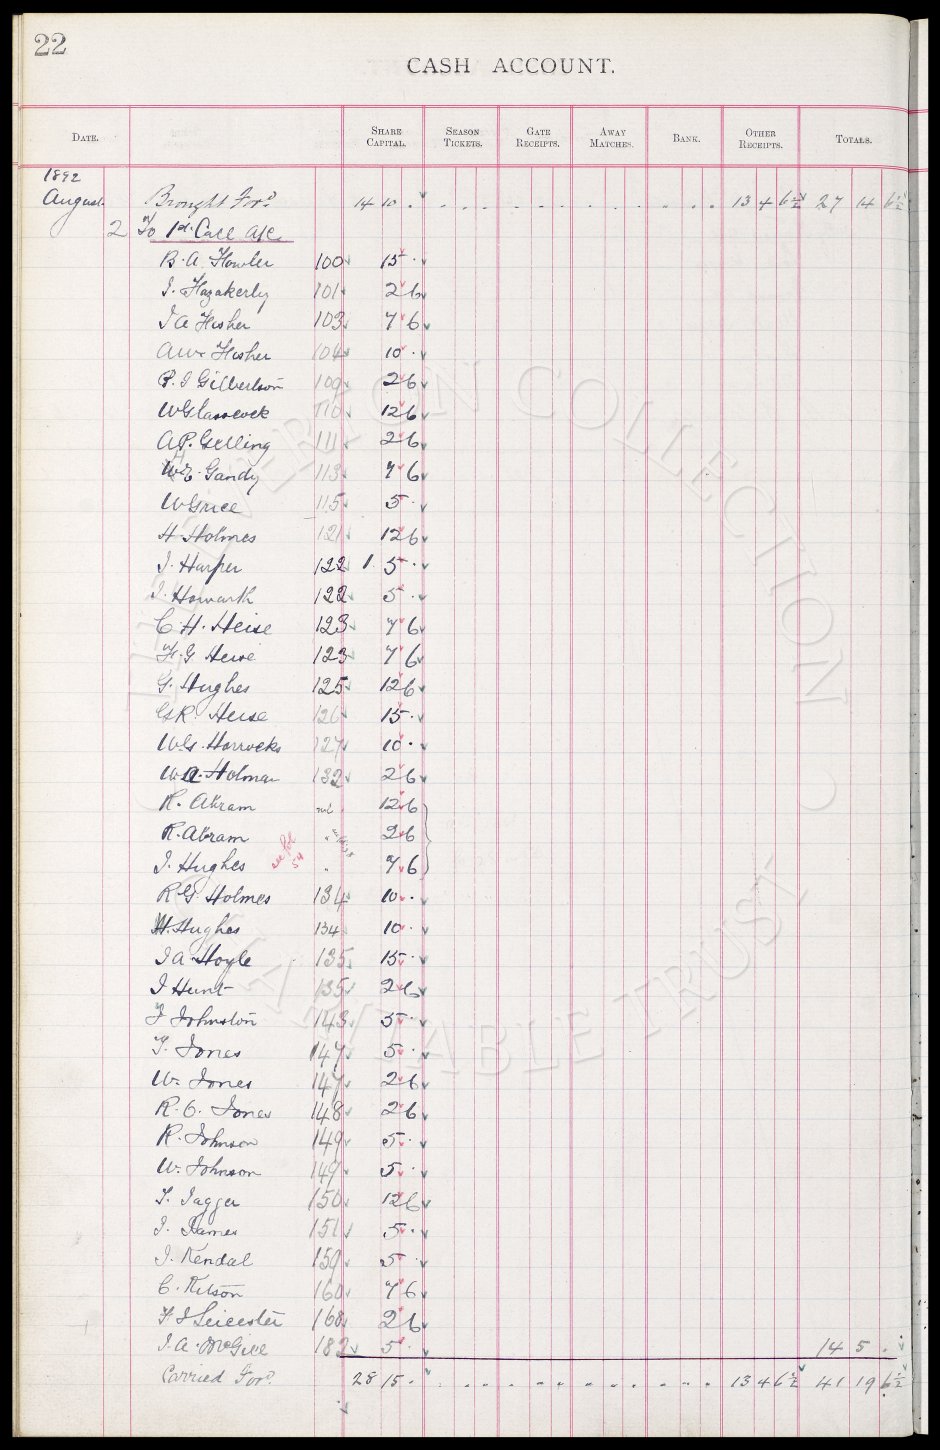 22
CASH ACCOUNT.
DATE. SHARE CAPITAL. SEASON TICKETS. GATE RECEIPTS. AWAY MATCHES. BANK. OTHER RECEIPTS. TOTALS.
1892
August Brought Ford 14 10 . 13 4 6½ 27 14 6½
2 To 1st Call A/c
B. A. Fowler 100 15 .
J. Hazakerly 101 2 6
J A Fisher 103 7 6
A W Fisher 104 10 .
P. J Gilbertson 109 2 6
W Glasscock 110 12 6
A P. Gelling 111 2 6
W. E. Gandy 113 7 6
W Grice 115 5 .
H. Holmes 121 12 6
J. Harper 122 1 5 .
J. Howarth 122 5 .
C. H. Heise 123 7 6
F. G Heise 123 7 6
G. Hughes 125 12 6
G R. Heise 126 15 .
W. G. Horrocks 127 10 .
W. A. Holman 132 2 6
R. Abram nil 12 6
R. Abram " 2 6
J. Hughes see fol 54 " 7 6
R G. Holmes 134 10 .
H. Hughes 134 10 .
J A Hoyle 135 15 .
J Hunt 135 2 6
F Johnston 143 5 .
T. Jones 147 5 .
W. Jones 147 2 6
R. O. Jones 148 2 6
R. Johnson 149 5 .
W. Johnson 149 5 .
T. Jagger 150 12 6
J. James 151 5 .
J. Kendal 159 5 .
C. Kitson 160 7 6
F J Leicester 168 2 6
J. A. McGill 182 5 . 14 5 .
Carried Ford 28 15 . 13 4 6½ 41 19 6½
EVERTON COLLECTION CHARITABLE TRUST